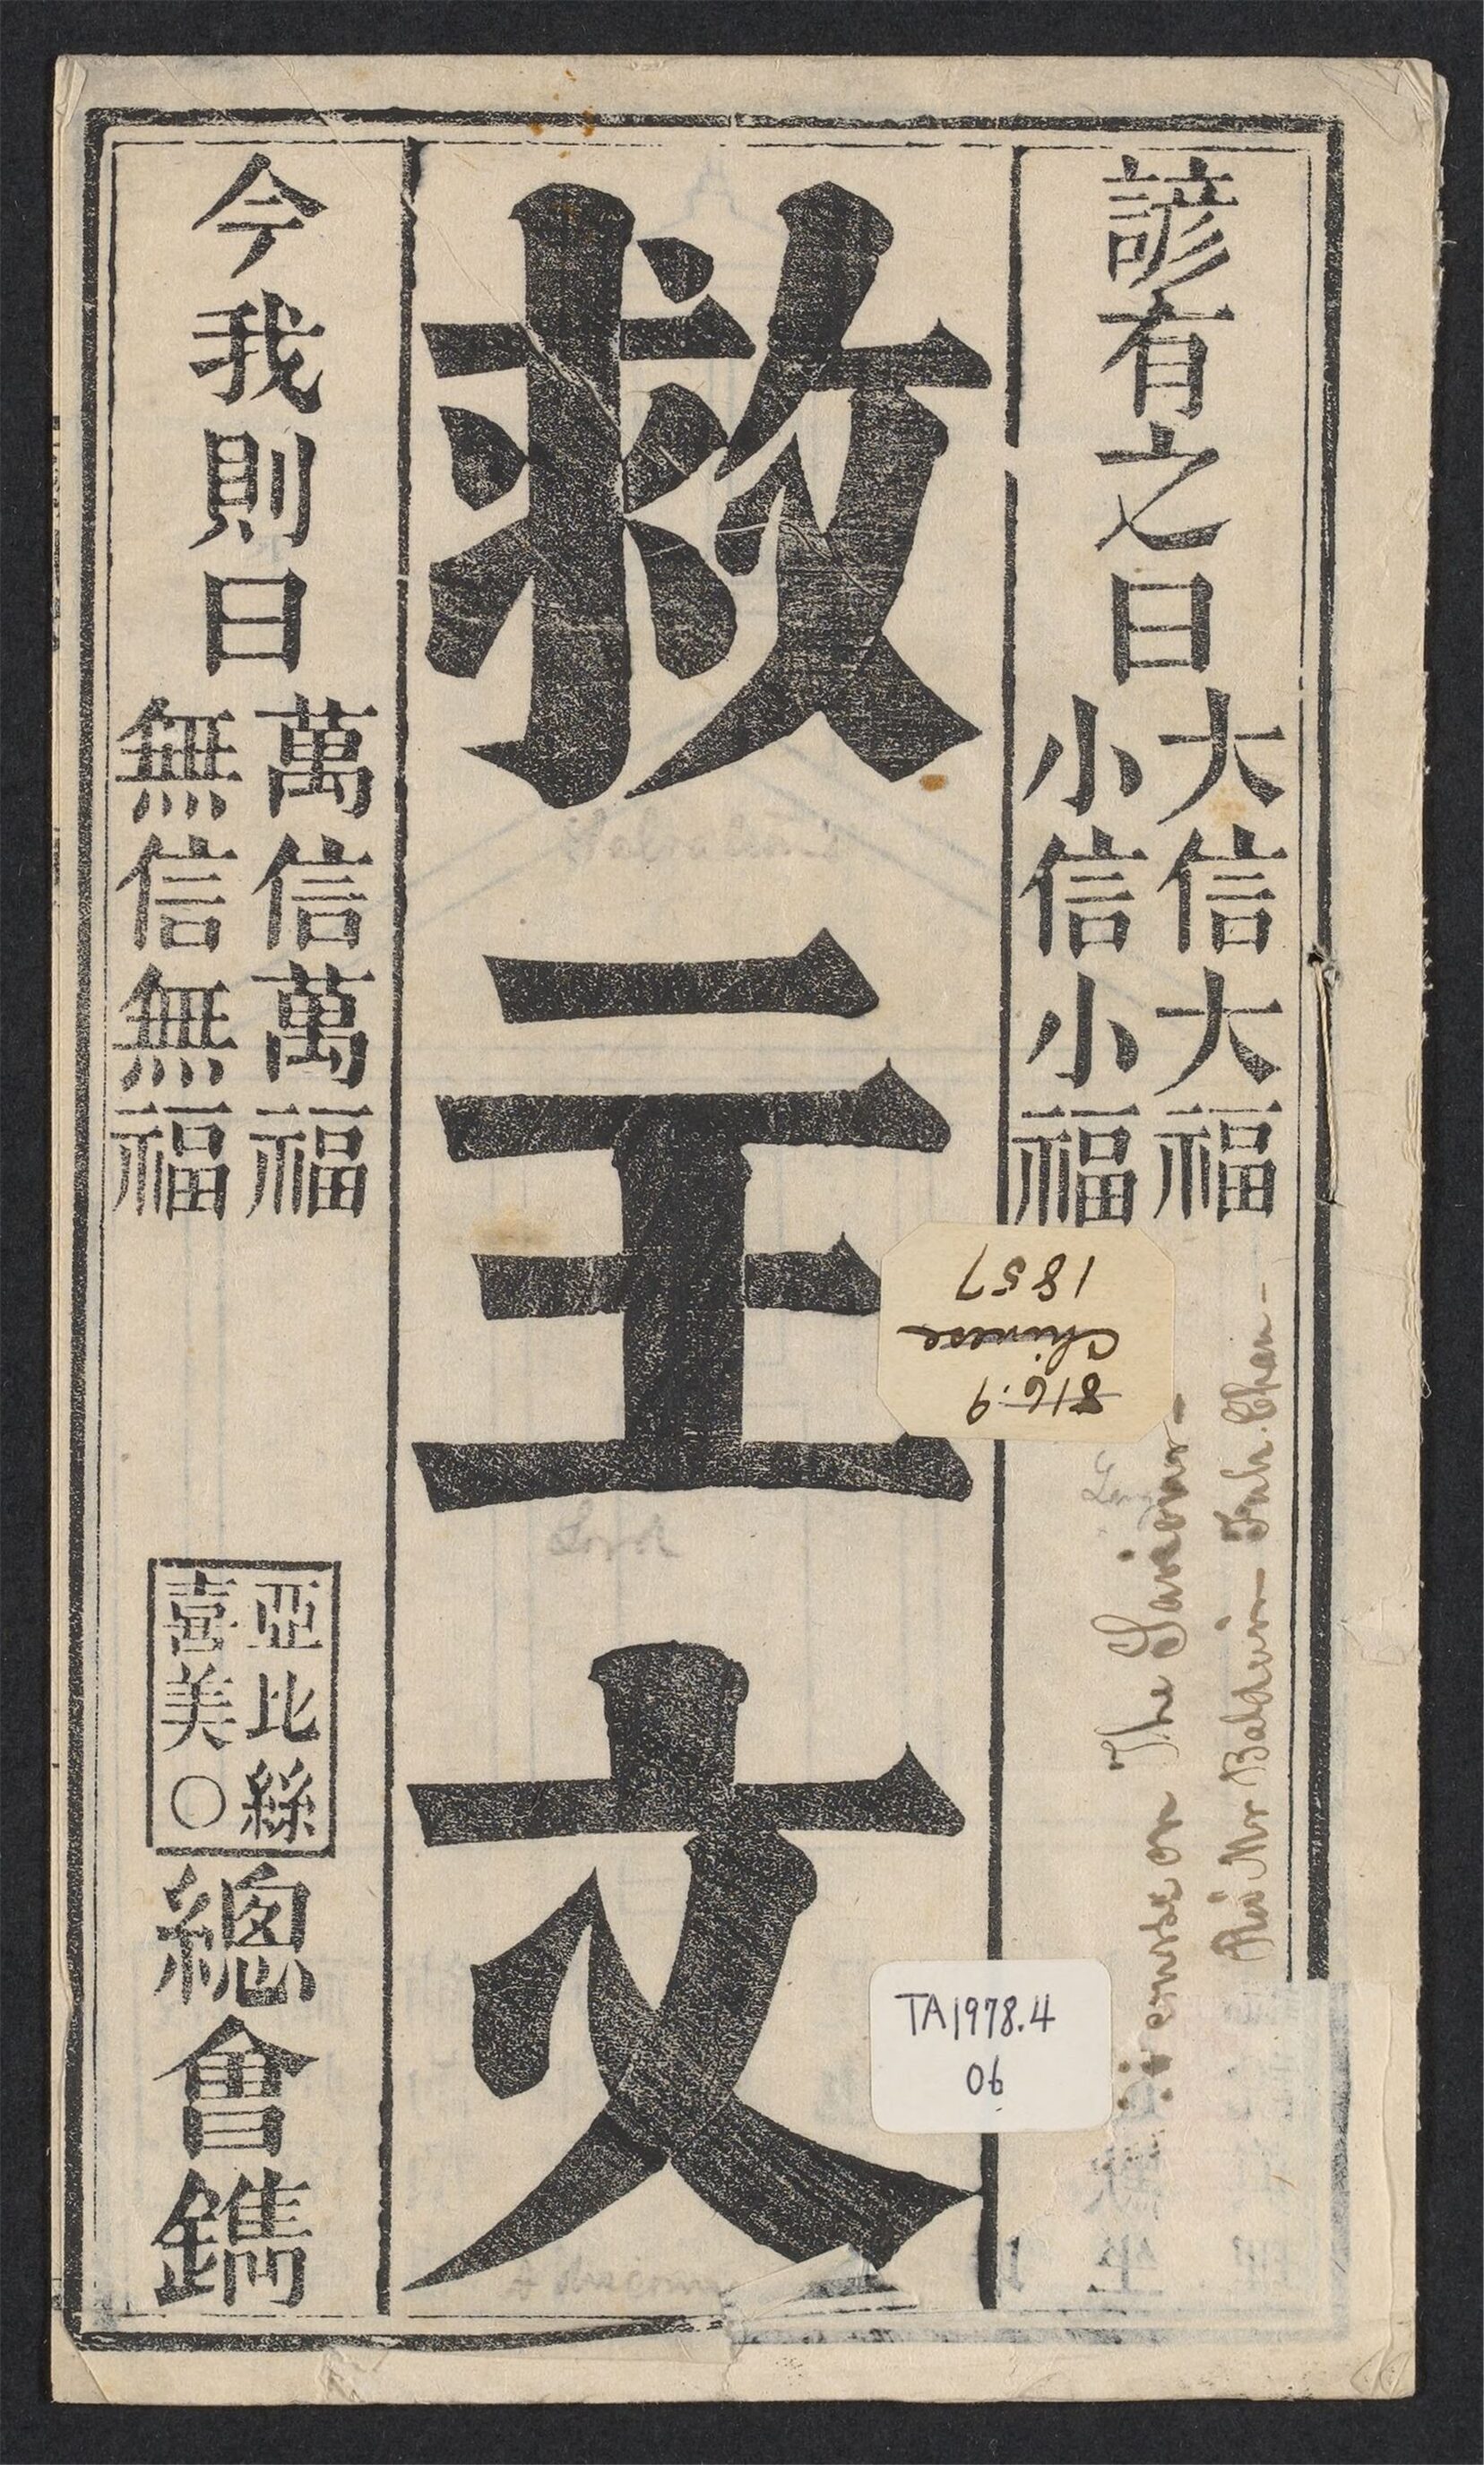 諺有之曰
大信大福
小信小福
救主文
今我則曰
萬信萬福
無信無福
亞比絲
喜美〇
總會鐫
1857
Chinese
816.9
TA1978.4
06
on The Saviour -
Rev Mr Baldwin - Fuh. Chau -
Salvation's
Lord
A discourse